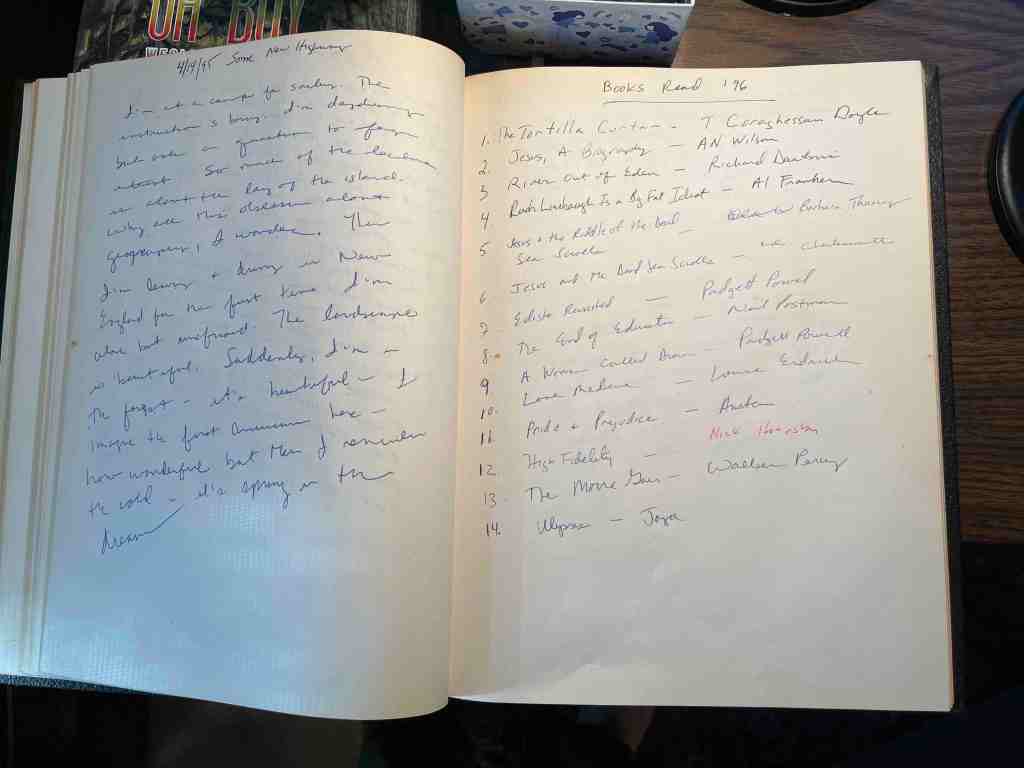 OH BOY
4/19/95 Some New Highway
I'm at a camp for sailing. The
instructor is boring. I'm daydreaming
but ask a question to feign
interest. So much of the lecture
is about the lay of the island.
Why all this discussion about
geography, I wonder. Then
I'm leaving & driving in New
England for the first time. I'm
alone but unafraid. The landscape
is beautiful. Suddenly, I'm in
the forest - it's beautiful - I
imagine the first Americans here -
how wonderful but then I remember
the cold - it's spring in the
dream
Books Read '96
1. The Tortilla Curtain - T Coraghessan Boyle
2. Jesus, A Biography - AN Wilson
3 River Out of Eden - Richard Dawkins
4. Rush Limbaugh Is a Big Fat Idiot - Al Franken
5 Jesus & the Riddle of the Dead
Sea Scrolls - Barbara Thiering
6 Jesus and the Dead Sea Scrolls - Charlesworth
7 Edisto Revisited - Padgett Powell
8. The End of Education - Neil Postman
9 A Woman Called Drown - Padgett Powell
10. Love Medicine - Louise Erdrich
11. Pride & Prejudice - Austen
12 High Fidelity - Nick
13. The Movie Goer - Walker Percy
14. Ulysses - Joyce